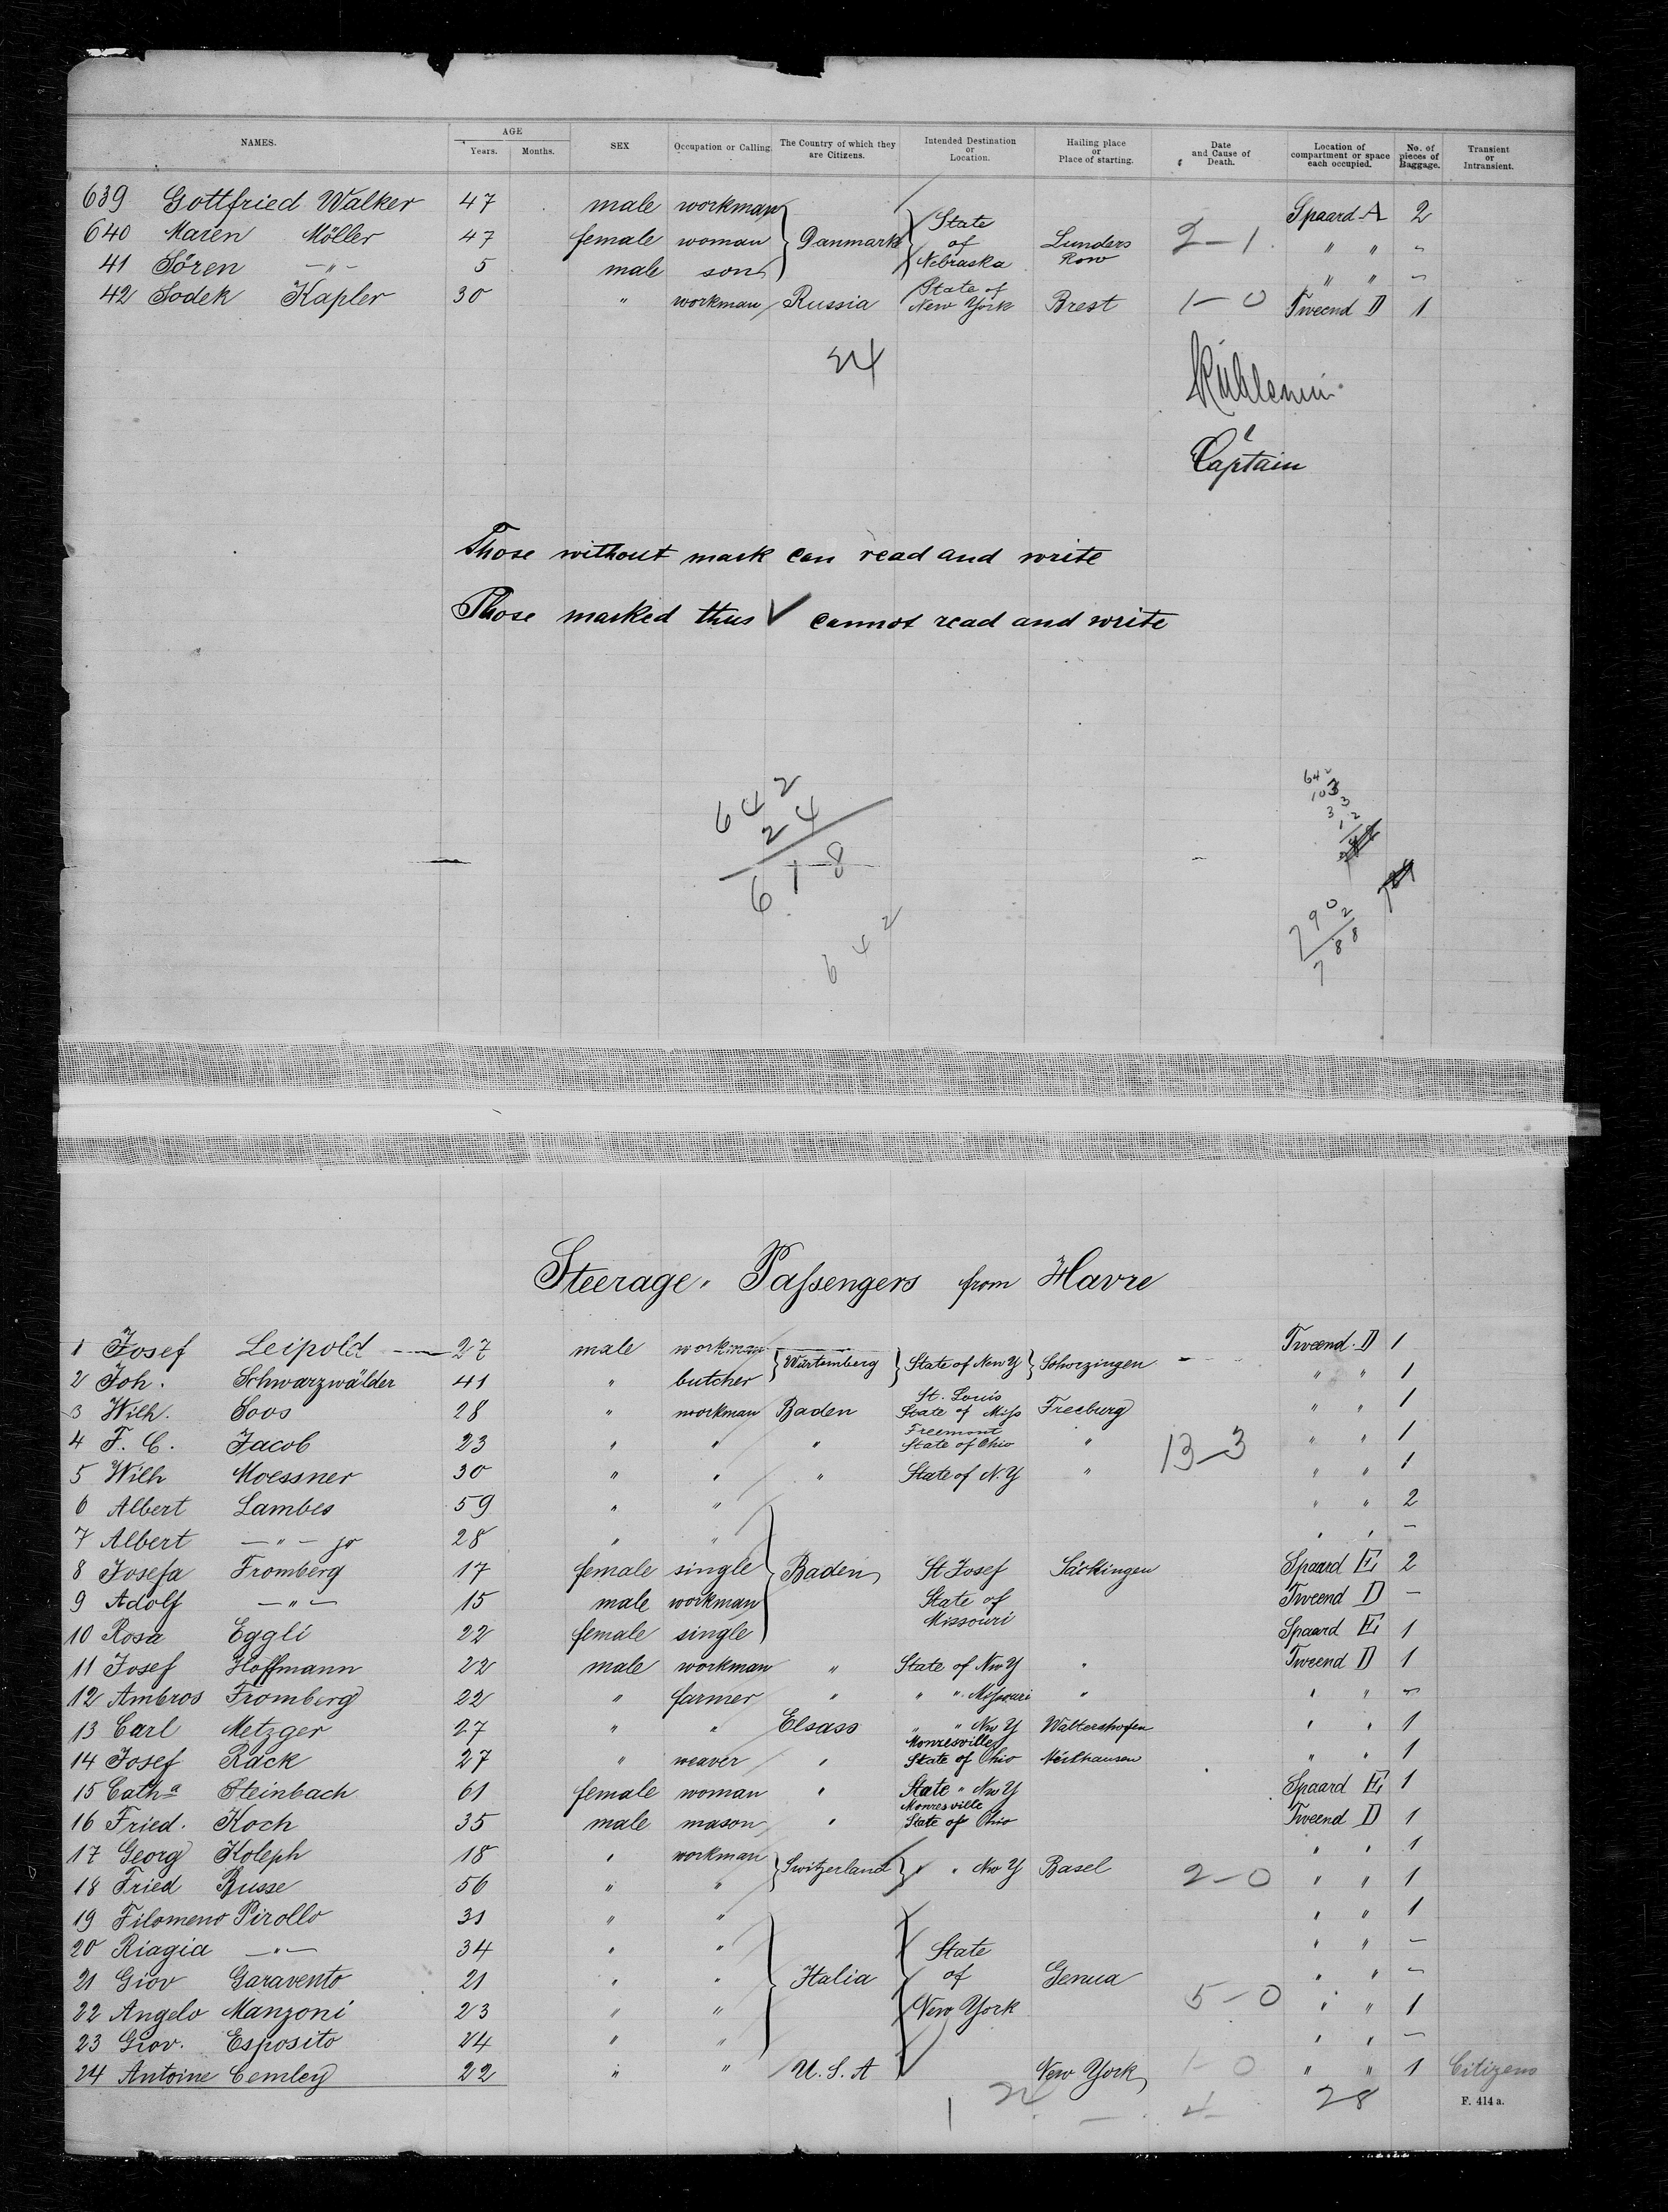 NAMES. AGE Years. Months. SEX Occupation or Calling. The Country of which they are Citizens. Intended Destination or Location. Hailing place or Place of starting. Date and Cause of Death. Location of compartment or space each occupied. No. of pieces of Baggage. Transient or Intransient.
639 Gottfried Walker 47 male workman Spaard A 2
640 Maren Möller 47 female woman Danmark State of Nebraska Lunders Row 2-1 " " "
41 Sören -"- 5 male son " " "
42 Sodek Kapler 30 " workman Russia State of New York Brest 1-0 Tweend D 1
24
Captain
Those without mark can read and write
Those marked thus V cannot read and write
642
24
618
642
642
103
33
12
790
2
788
Steerage Passengers from Havre
1 Josef Leipold 27 male workman Tweend. D 1
2 Joh. Schwarzwälder 41 " butcher Würtemberg State of New Y Schorzingen " " 1
3 Wilh. Soos 28 " workman Baden St. Louis State of Miss Freeburg " " 1
4 F. C. Jacob 23 " " " Freemont State of Ohio " 13-3 " " 1
5 Wilh Moessner 30 " " " State of N.Y " " " 1
6 Albert Lambes 59 " " " " 2
7 Albert -"- jr 28 " " " " -
8 Josefa Fromberg 17 female single Baden St Josef Säckingen Spaard E 2
9 Adolf -"- 15 male workman State of Tweend D -
10 Rosa Eggli 22 female single Missouri Spaard E 1
11 Josef Hoffmann 22 male workman " State of New Y " Tweend D 1
12 Ambros Fromberg 22 " farmer " " " Missouri " " " -
13 Carl Metzger 27 " " Elsass " " New Y Waltershofen " " 1
14 Josef Rack 27 " weaver " Monresville State of Ohio " " 1
15 Catha Steinbach 61 female woman " State " New Y Spaard E 1
16 Fried. Koch 35 male mason " Monresville State of Ohio Tweend D 1
17 Georg Koleph 18 " workman " " 1
18 Fried Busse 56 " " Switzerland " " New Y Basel 2-0 " " 1
19 Filomeno Pirollo 31 " " " " 1
20 Riagia -"- 34 " " State " " -
21 Giov Garavento 21 " " Italia of Genua " " -
22 Angelo Manzoni 23 " " New York 5-0 " " 1
23 Giov. Esposito 24 " " " " -
24 Antoine Cemley 22 " " U.S.A New York 1-0 " " 1 Citizens
28
F. 414 a.